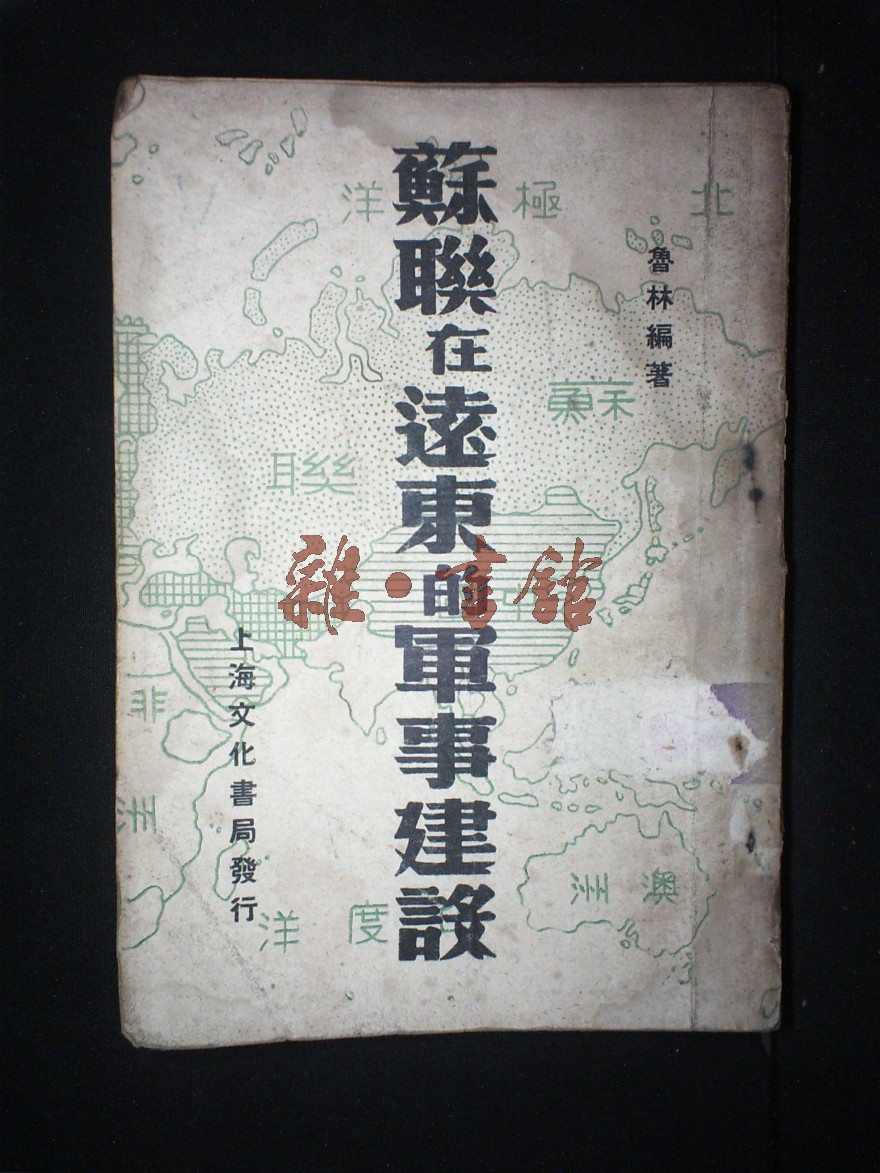 蘇聯在遠東的軍事建設
魯林編著
上海文化書局發行
北極洋
蘇聯
非洲
澳洲
度洋
雜·書館